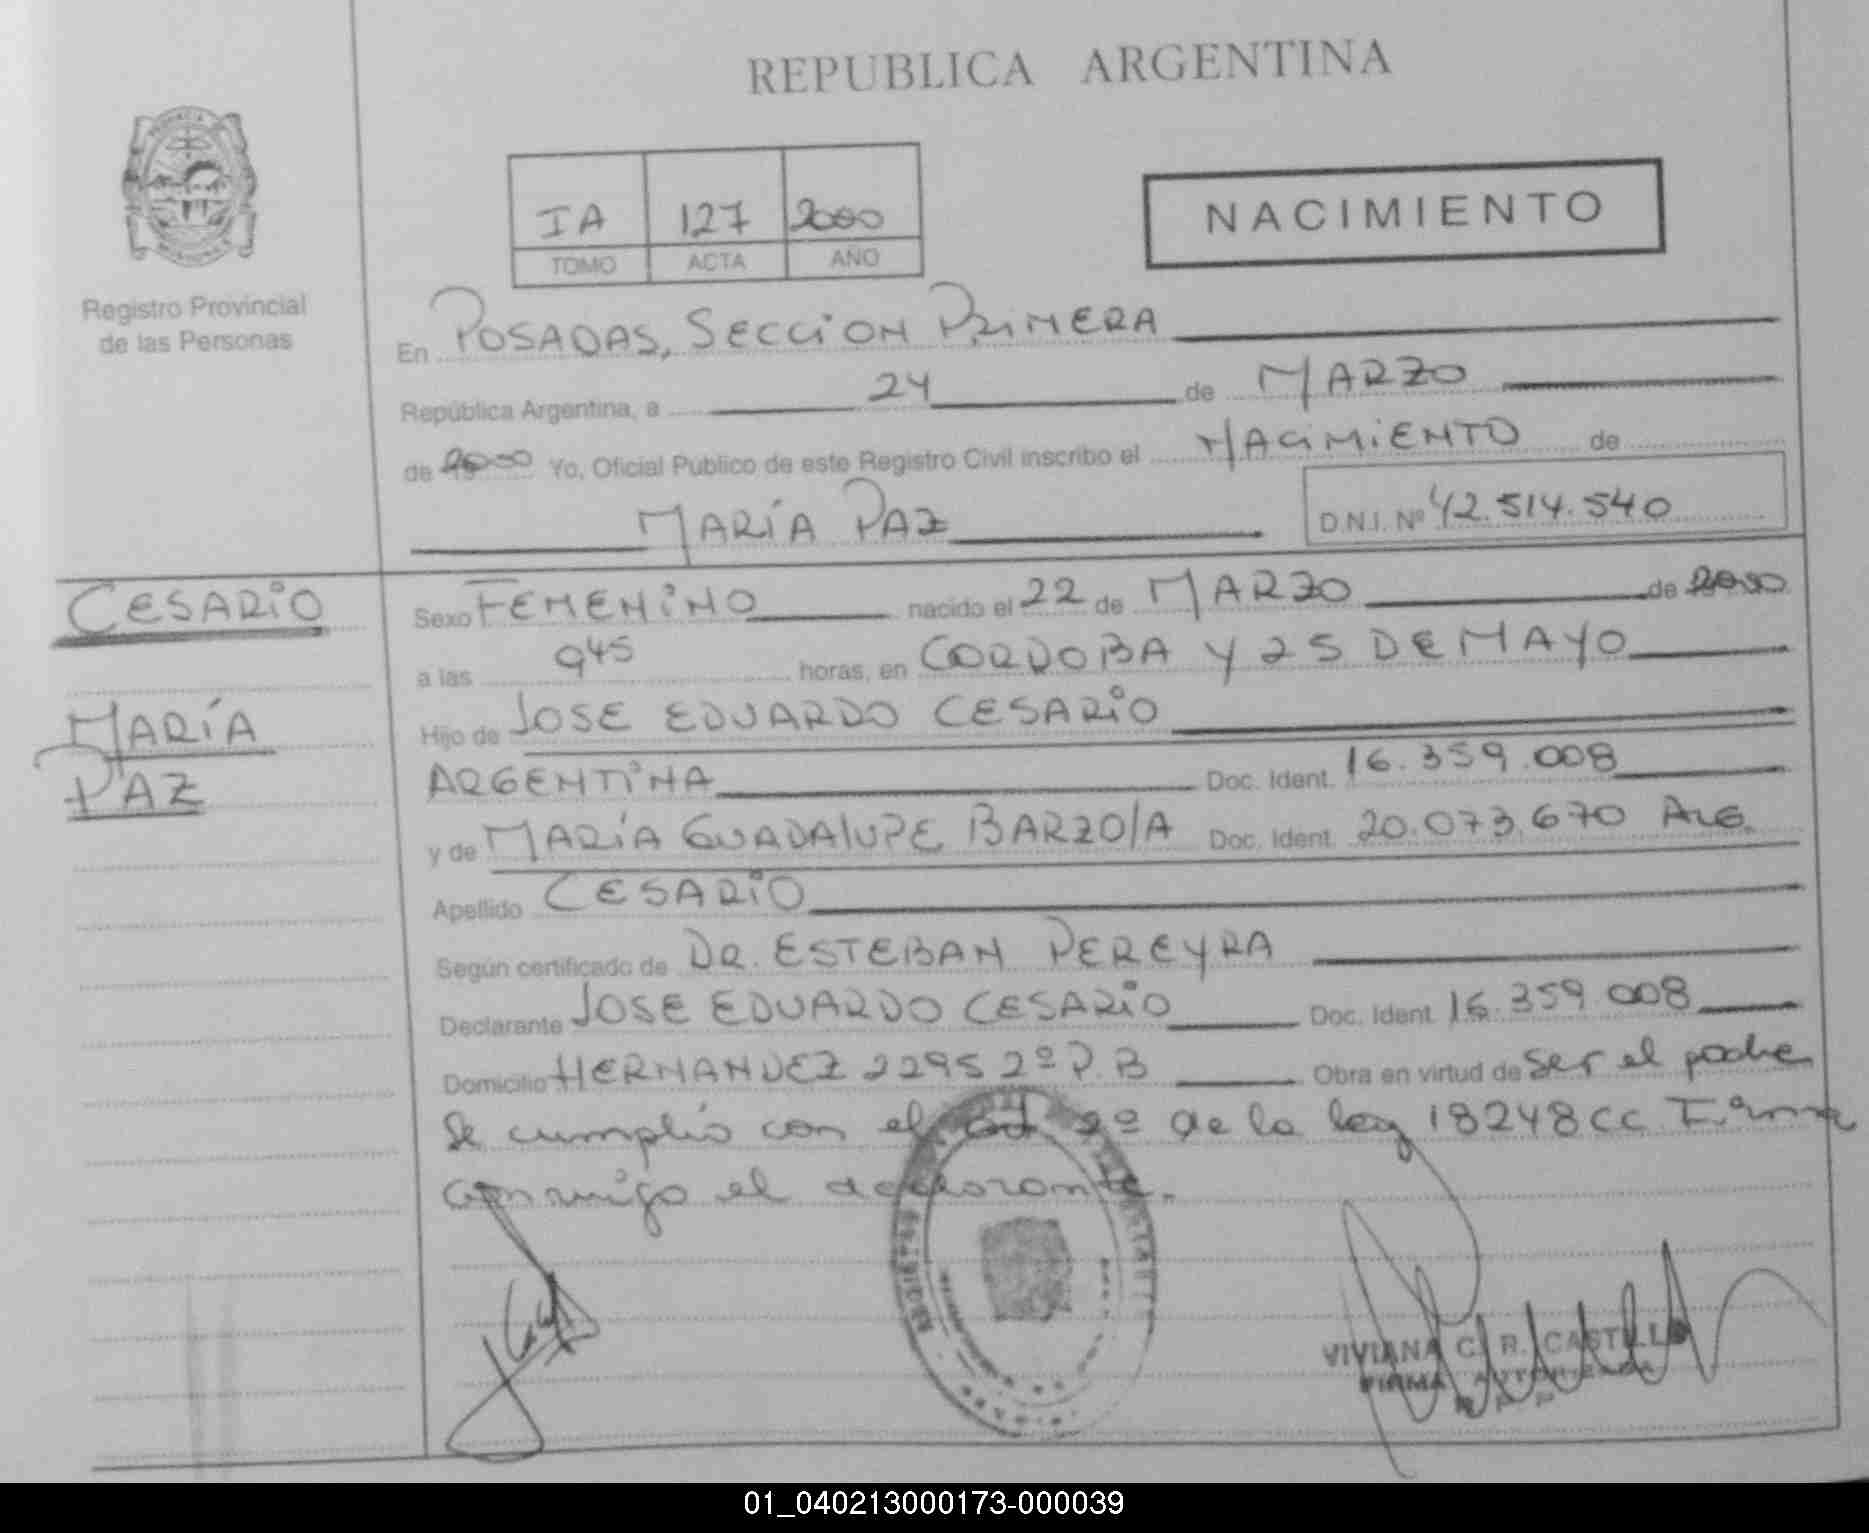 REPUBLICA ARGENTINA
IA 127 2000
TOMO ACTA AÑO
NACIMIENTO
Registro Provincial
de las Personas
En POSADAS, SECCION PRIMERA
República Argentina, a 24 de MARZO
de 2000 Yo, Oficial Publico de este Registro Civil inscribo el NACIMIENTO de
MARÍA PAZ D.N.I. Nº 42.514.540
CESARIO
MARÍA
PAZ
Sexo FEMENINO nacido el 22 de MARZO de 2000
a las 945 horas, en CORDOBA Y 25 DE MAYO
Hijo de JOSE EDUARDO CESARIO
ARGENTINA Doc. Ident. 16.359.008
y de MARÍA GUADALUPE BARZOLA Doc. Ident. 20.073.670 ARG.
Apellido CESARIO
Según certificado de DR. ESTEBAN PEREYRA
Declarante JOSE EDUARDO CESARIO Doc. Ident. 16.359.008
Domicilio HERNANDEZ 2295 2º P. B Obra en virtud de ser el padre
Se cumplió con el art 2º de la ley 18248 CC. Firma
conmigo el declarante.
VIVIANA C. R. CASTILLO
FIRMA AUTORIZADA
01_040213000173-000039